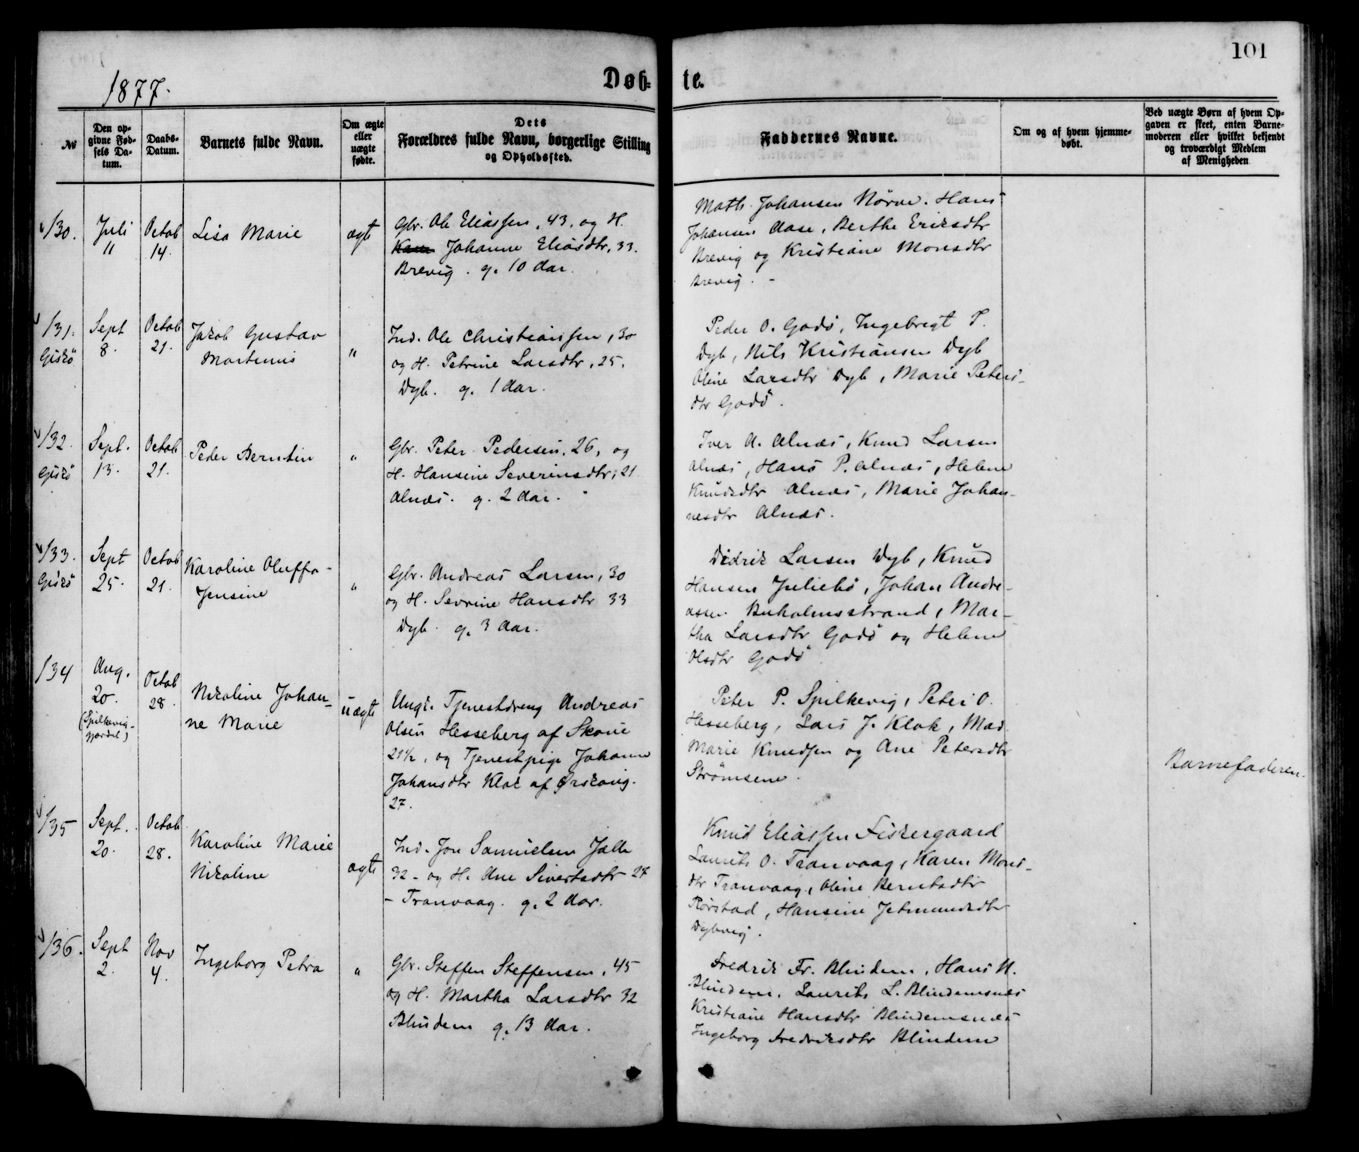 101
1877.
Døb-
te.
№
Den op-
givne Fød-
sels Da-
tum.
Daabs-
Datum.
Barnets fulde Navn.
Om ægte
eller
uægte
fødte.
Dets
Forældres fulde Navn, borgerlige Stilling
og Opholdssted.
Faddernes Navne.
Om og af hvem hjemme-
døbt.
Ved uægte Børn af hvem Op-
gaven er skeet, enten Barne-
moderen eller hvilket bekjendt
og troværdigt Medlem
af Menigheden
130.
Juli
11
Octob
14.
Lisa Marie
ægte
Gbr. Ole Eliassen, 43, og H.
Johanne Eliasdtr, 33.
Brevig. g. 10 Aar.
Matts Johansen Nørve. Hans
Johansen Aase, Berthe Ericsdtr
Brevig og Kristiane Monsdtr
Brevig. -
131.
Giskø
Sept
8.
Octob
21.
Jakob Gustav
Martinus
"
Ind. Ole Christianssen, 30
og H. Petrine Larsdtr, 25,
Dyb. g. 1 Aar.
Peder O. Godø, Ingebregt P.
Dyb, Nils Kristiansen Dyb
Oline Larsdtr Dyb, Marie Peters-
dtr Godø.
132.
Giskø
Sept.
13.
Octob
21.
Peder Berntin
"
Gbr. Peter Pedersen, 26, og
H. Hansine Severinsdtr, 21
Alnæs. g. 2 Aar.
Iver A. Alnæs, Knud Larsen
Alnæs, Hans P. Alnæs, Helene
Knudsdtr Alnæs, Marie Johan-
nesdtr Alnæs.
133.
Giskø
Sept
25.
Octob
21.
Karoline Oluffa
Jensine
"
Gbr. Andreas Larsen, 30
og H. Sevrine Hansdtr 33
Dyb. g. 3 Aar.
Didrik Larsen Dyb, Knud
Hansen Juliebø, Johan Andre-
assen Buholmsstrand, Mar-
tha Larsdtr Godø og Helene
Olsdtr Godø
134
Aug.
20.
(Spilkevig-
gjærdet)
Octob
28.
Nicoline Johan-
ne Marie
uægte
Ungk. Tjenestdreng Andreas
Olsen Hesseberg af Skoue
21½, og Tjenestpige Johanne
Johansdtr Klok af Ørskoug.
27.
Peter P. Spilkevig, Peter O.
Hesseberg, Lars J. Klok, Mad.
Marie Knudsen og Ane Petersdtr
Strømsene.
Barnefaderen.
135
Sept.
20.
Octob
28.
Karoline Marie
Nicoline
ægte
Ind. Jon Samuelsen Jalle
32 - og H. Ane Sivertsdtr 27
- Tranvaag. g. 2 Aar.
Knud Eliassen Fiskergaard
Laurits O. Tranvaag, Karen Mons-
dtr Tranvaag, Oline Berntsdtr
Rørstad, Hansine Jetmundsdtr
Dybvig.
136.
Sept
2.
Nov
4.
Ingeborg Petra
"
Gbr. Steffen Steffensen, 45
og H. Martha Larsdtr 32
Blindem g. 13 Aar.
Fredrik Fr. Blindem, Hans N.
Blindem, Laurits L. Blindemsnæs
Kristiane Hansdtr Blindemsnæs
Ingeborg Fredriksdtr Blindem